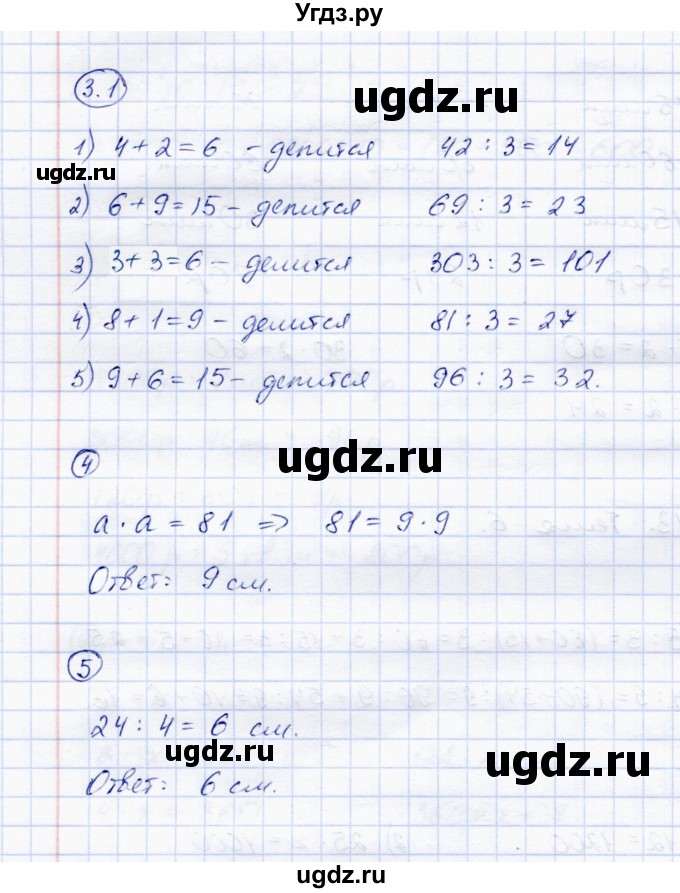 Угдз.ру
3.1
ugdz.ru
1) 4+2=6 - делится 42 : 3 = 14
ugdz.ru
2) 6+9=15 - делится 69 : 3 = 23
3) 3+3=6 - делится 303 : 3 = 101
4) 8+1=9 - делится 81 : 3 = 27
5) 9+6=15 - делится 96 : 3 = 32.
4
ugdz.ru
a · a = 81 => 81 = 9 · 9
Ответ: 9 см.
5
24 : 4 = 6 см.
ugdz.ru
ugdz.ru
Ответ: 6 см.
ugdz.ru